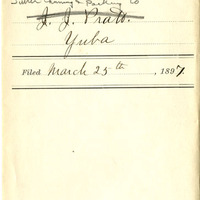 Canning & Packing Co
J. J. Pratt.
Yuba
Filed March 25th, 1897.